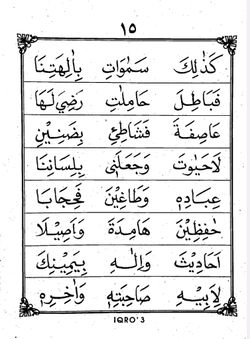 ١٥
كَذٰلِكَ سَمٰوَاتِ بِاٰلِهَتِنَا
فَبَاطِلَ حَامِلٰتِ رَضِيَ لَهَا
عَاصِفَةَ فَشَاطِئِ بِضَنِيْنِ
لَاحَيٰوتَ وَجَعَلَنِيْ بِلِسَانِنَا
عِبَادِهٖ وَطَاغِيْنَ فَحِجَابَا
حٰفِظِيْنَ هَامِدَةَ وَاَصِيْلًا
اَحَادِيْثَ وَاِلٰهِ بِيَمِيْنِكَ
لِاَبِيْهِ صَاحِبَتِهٖ وَاٰخِرِهٖ
IQRO' 3